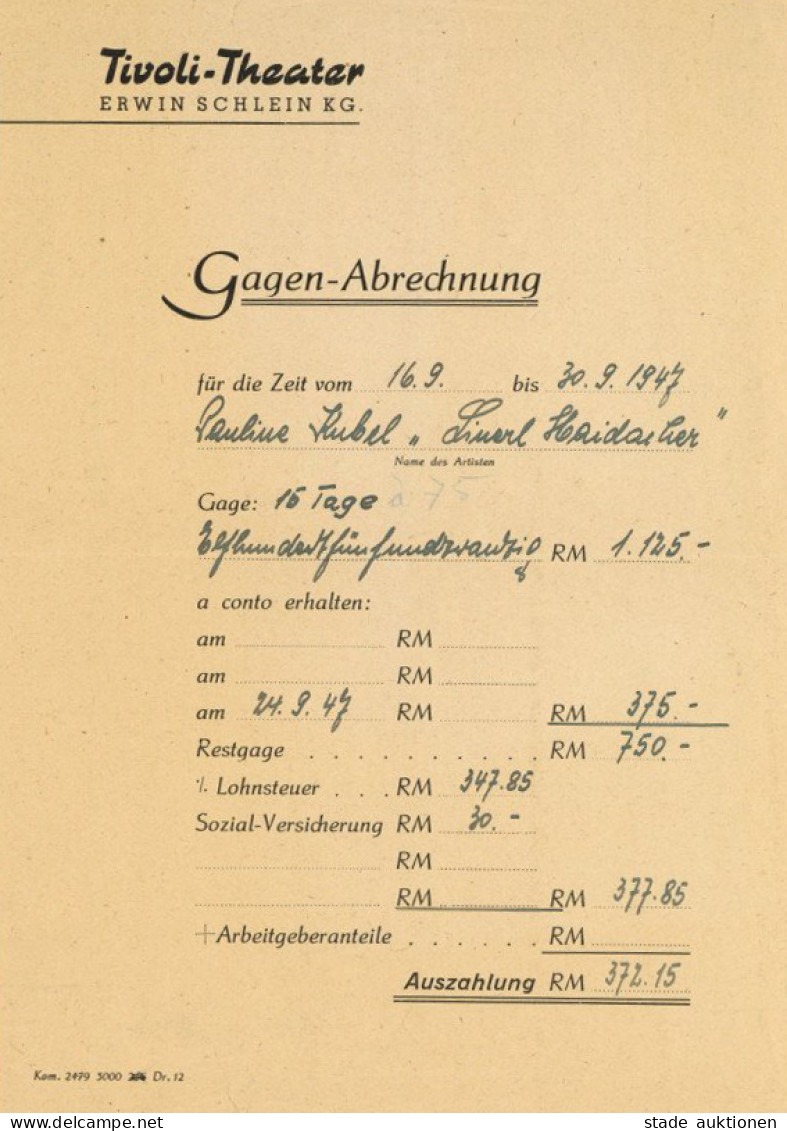 Tivoli-Theater
ERWIN SCHLEIN KG.
Gagen-Abrechnung
für die Zeit vom 16.9. bis 30.9.1947
Pauline Kubel „Linerl Haidacher"
Name des Artisten
Gage: 15 Tage à 75
Elfhundertfünfundzwanzig RM 1.125.-
a conto erhalten:
am RM
am RM
am 24.9.47 RM RM 375.-
Restgage . . . . . . . . . . RM 750.-
·/. Lohnsteuer . . . RM 347.85
Sozial-Versicherung RM 30.-
RM
RM RM 377.85
+Arbeitgeberanteile . . . . . . RM
Auszahlung RM 372.15
Kom. 2479 5000 Dr. 12
www.delcampe.net
stade auktionen